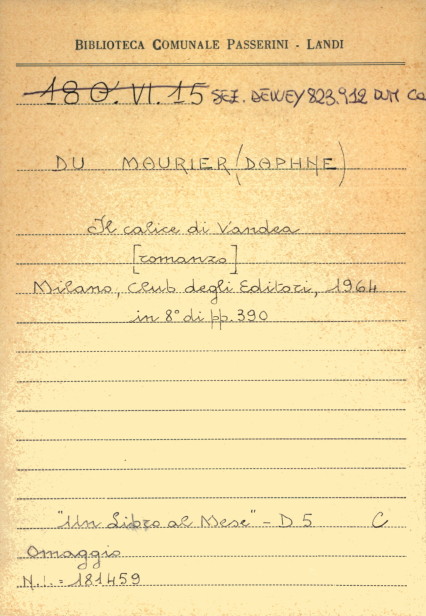 BIBLIOTECA COMUNALE PASSERINI - LANDI
180. VI. 15 SEZ. DEWEY 823.912 DUM Ca
DU MAURIER (DAPHNE)
Il calice di Vandea
[romanzo]
Milano, Club degli Editori, 1964
in 8° di pp. 390
"Un Libro al Mese" - D 5 C
Omaggio
N.I.= 181459